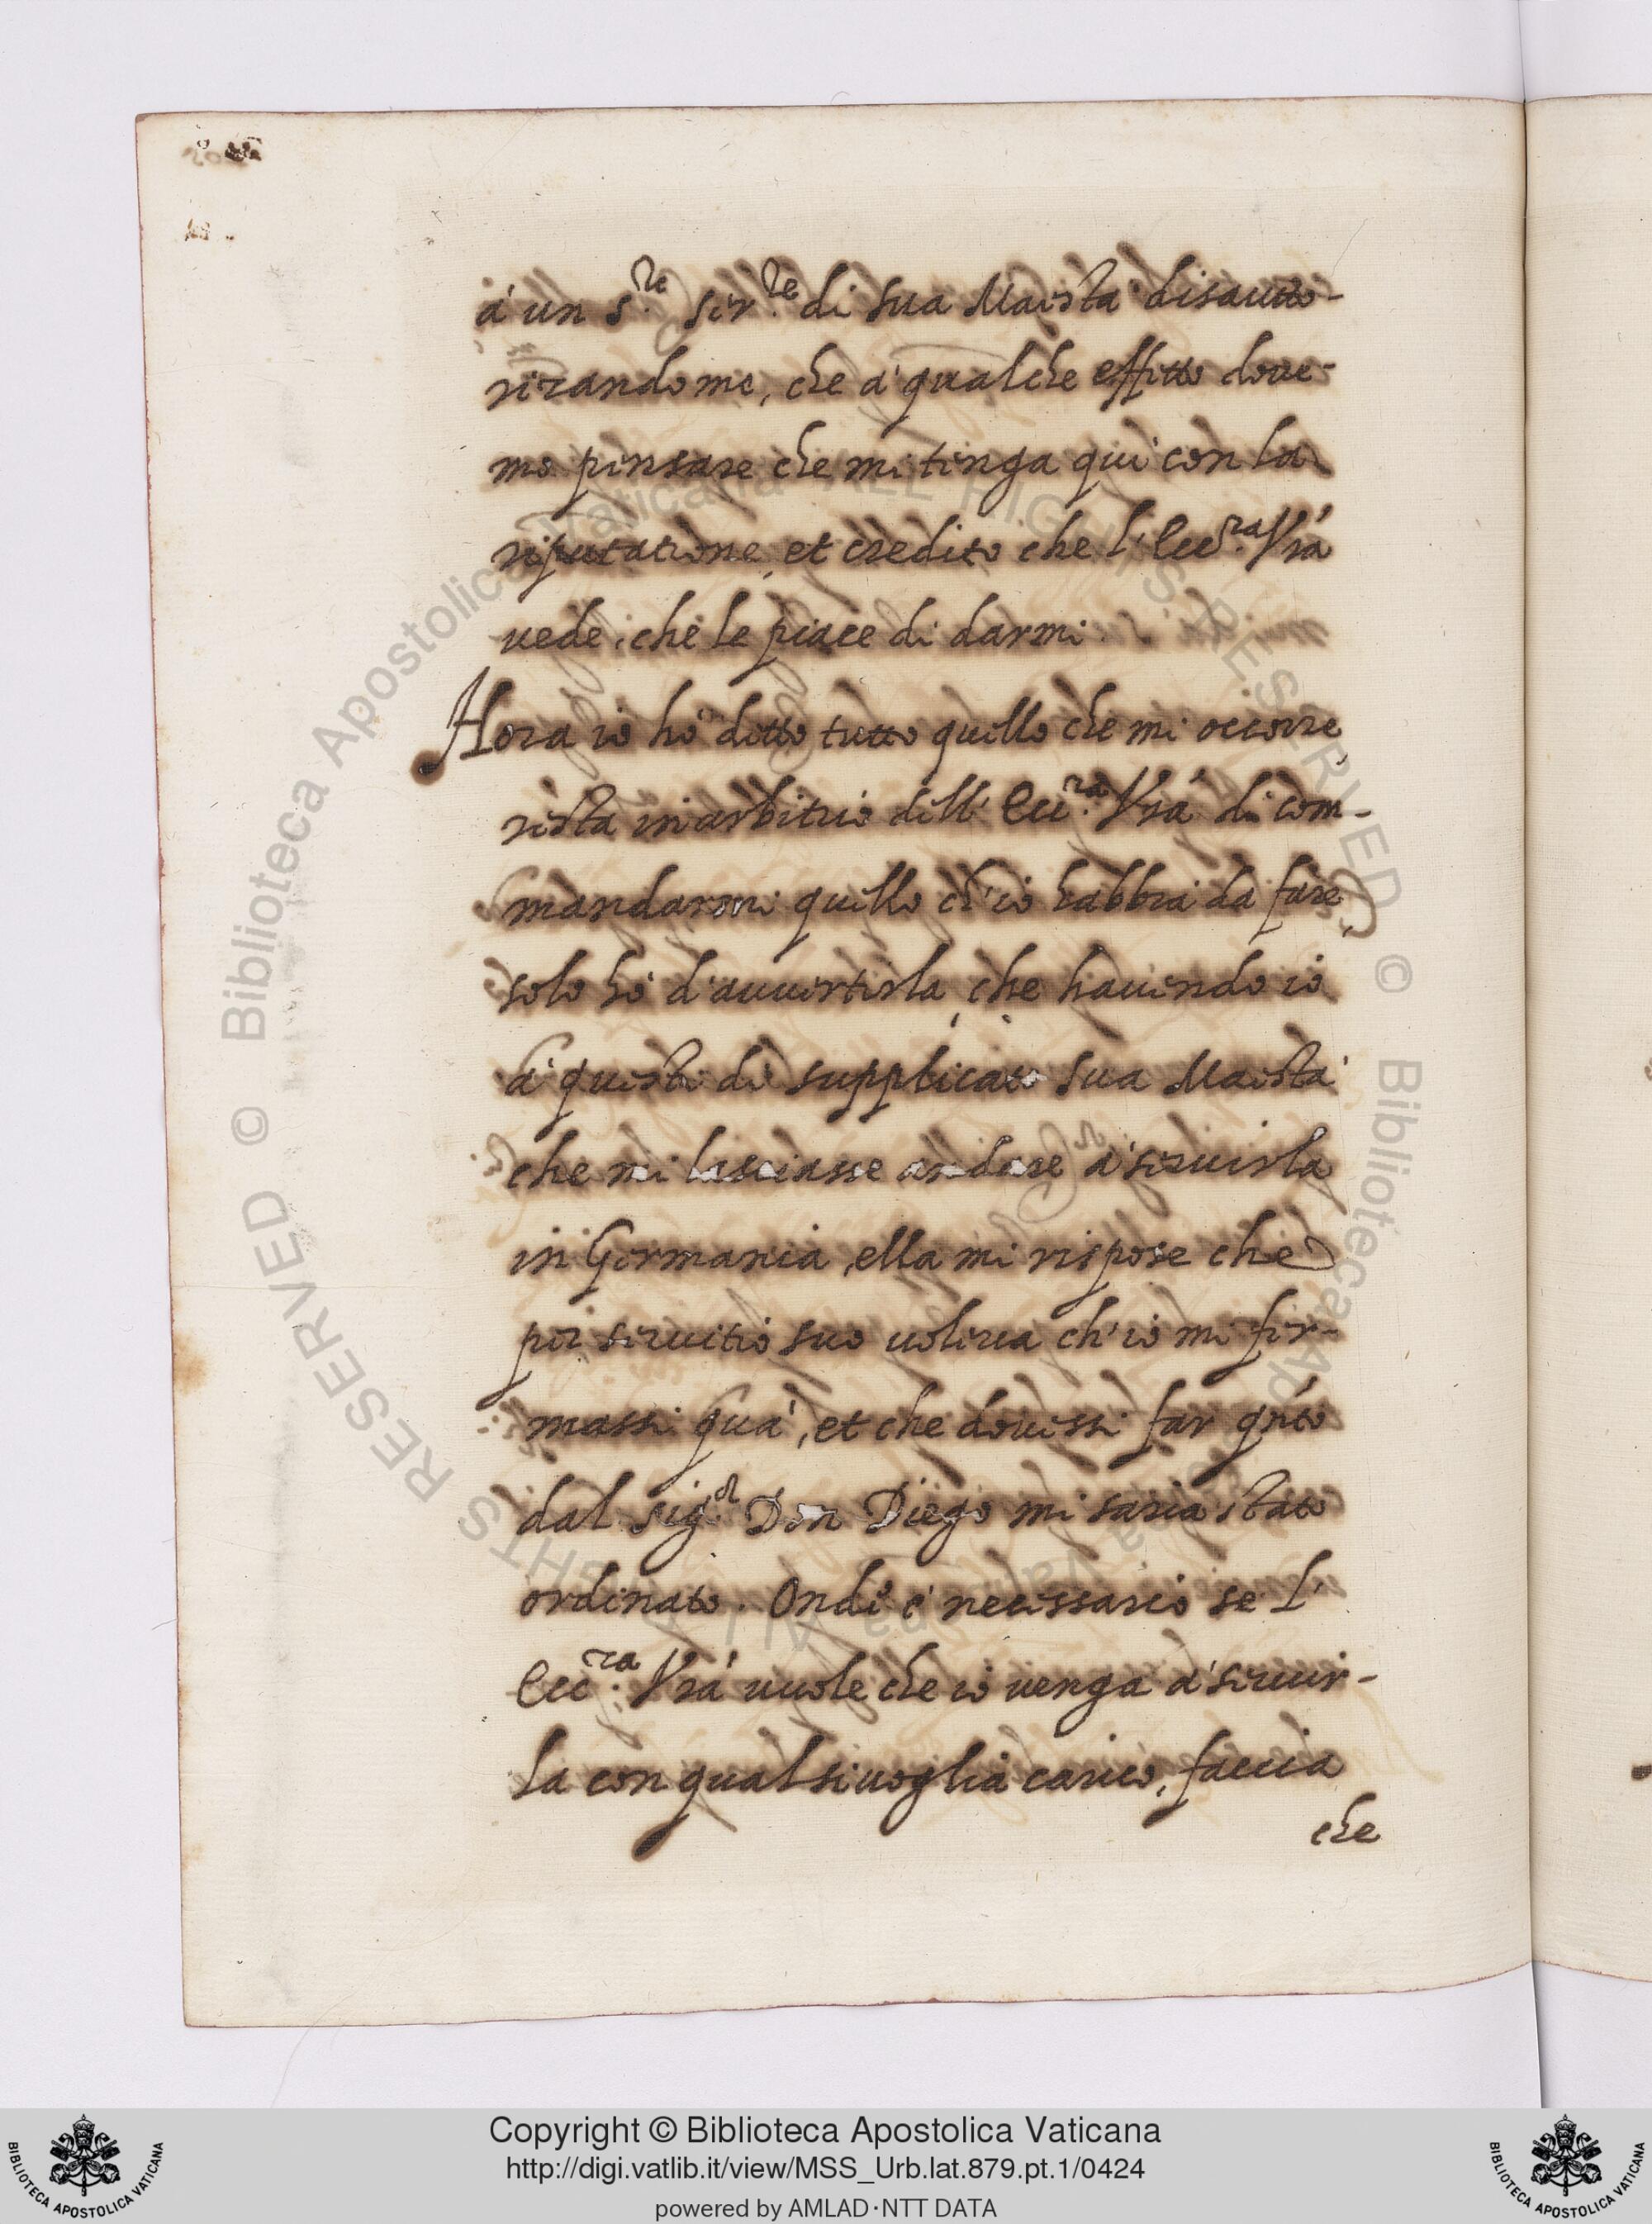 à un s.re ser.re di sua Maestà disautto-
rizandome, che à qualche effetto doue-
mo pensare che mi tenga quì con la
riputatione et credito che l'Ecc.za Vrà
uede, che le piace di darmi.
Hora io hò detto tutto quello che mi occorre,
resta in arbitrio dell'Ecc.za Vrà di com-
mandarmi quello ch'io habbia da fare,
solo hò d'auuertirla, che hauendo io
à questi dì supplicato sua Maestà
che mi lasciasse andare à seruirla
in Germania, ella mi rispose che
per seruitio suo uoleua ch'io mi fer-
massi quà, et che douessi far qnto
dal sig.r Don Diego mi saria stato
ordinato. Onde è necessario se l'
Ecc.za Vrà uuole che io uenga à seruir-
la con qual si uoglia carico, faccia
che
© Biblioteca Apostolica Vaticana ALL RIGHTS RESERVED
© Biblioteca Apostolica Vaticana ALL RIGHTS RESERVED
Copyright © Biblioteca Apostolica Vaticana
http://digi.vatlib.it/view/MSS_Urb.lat.879.pt.1/0424
powered by AMLAD·NTT DATA
BIBLIOTECA APOSTOLICA VATICANA
BIBLIOTECA APOSTOLICA VATICANA